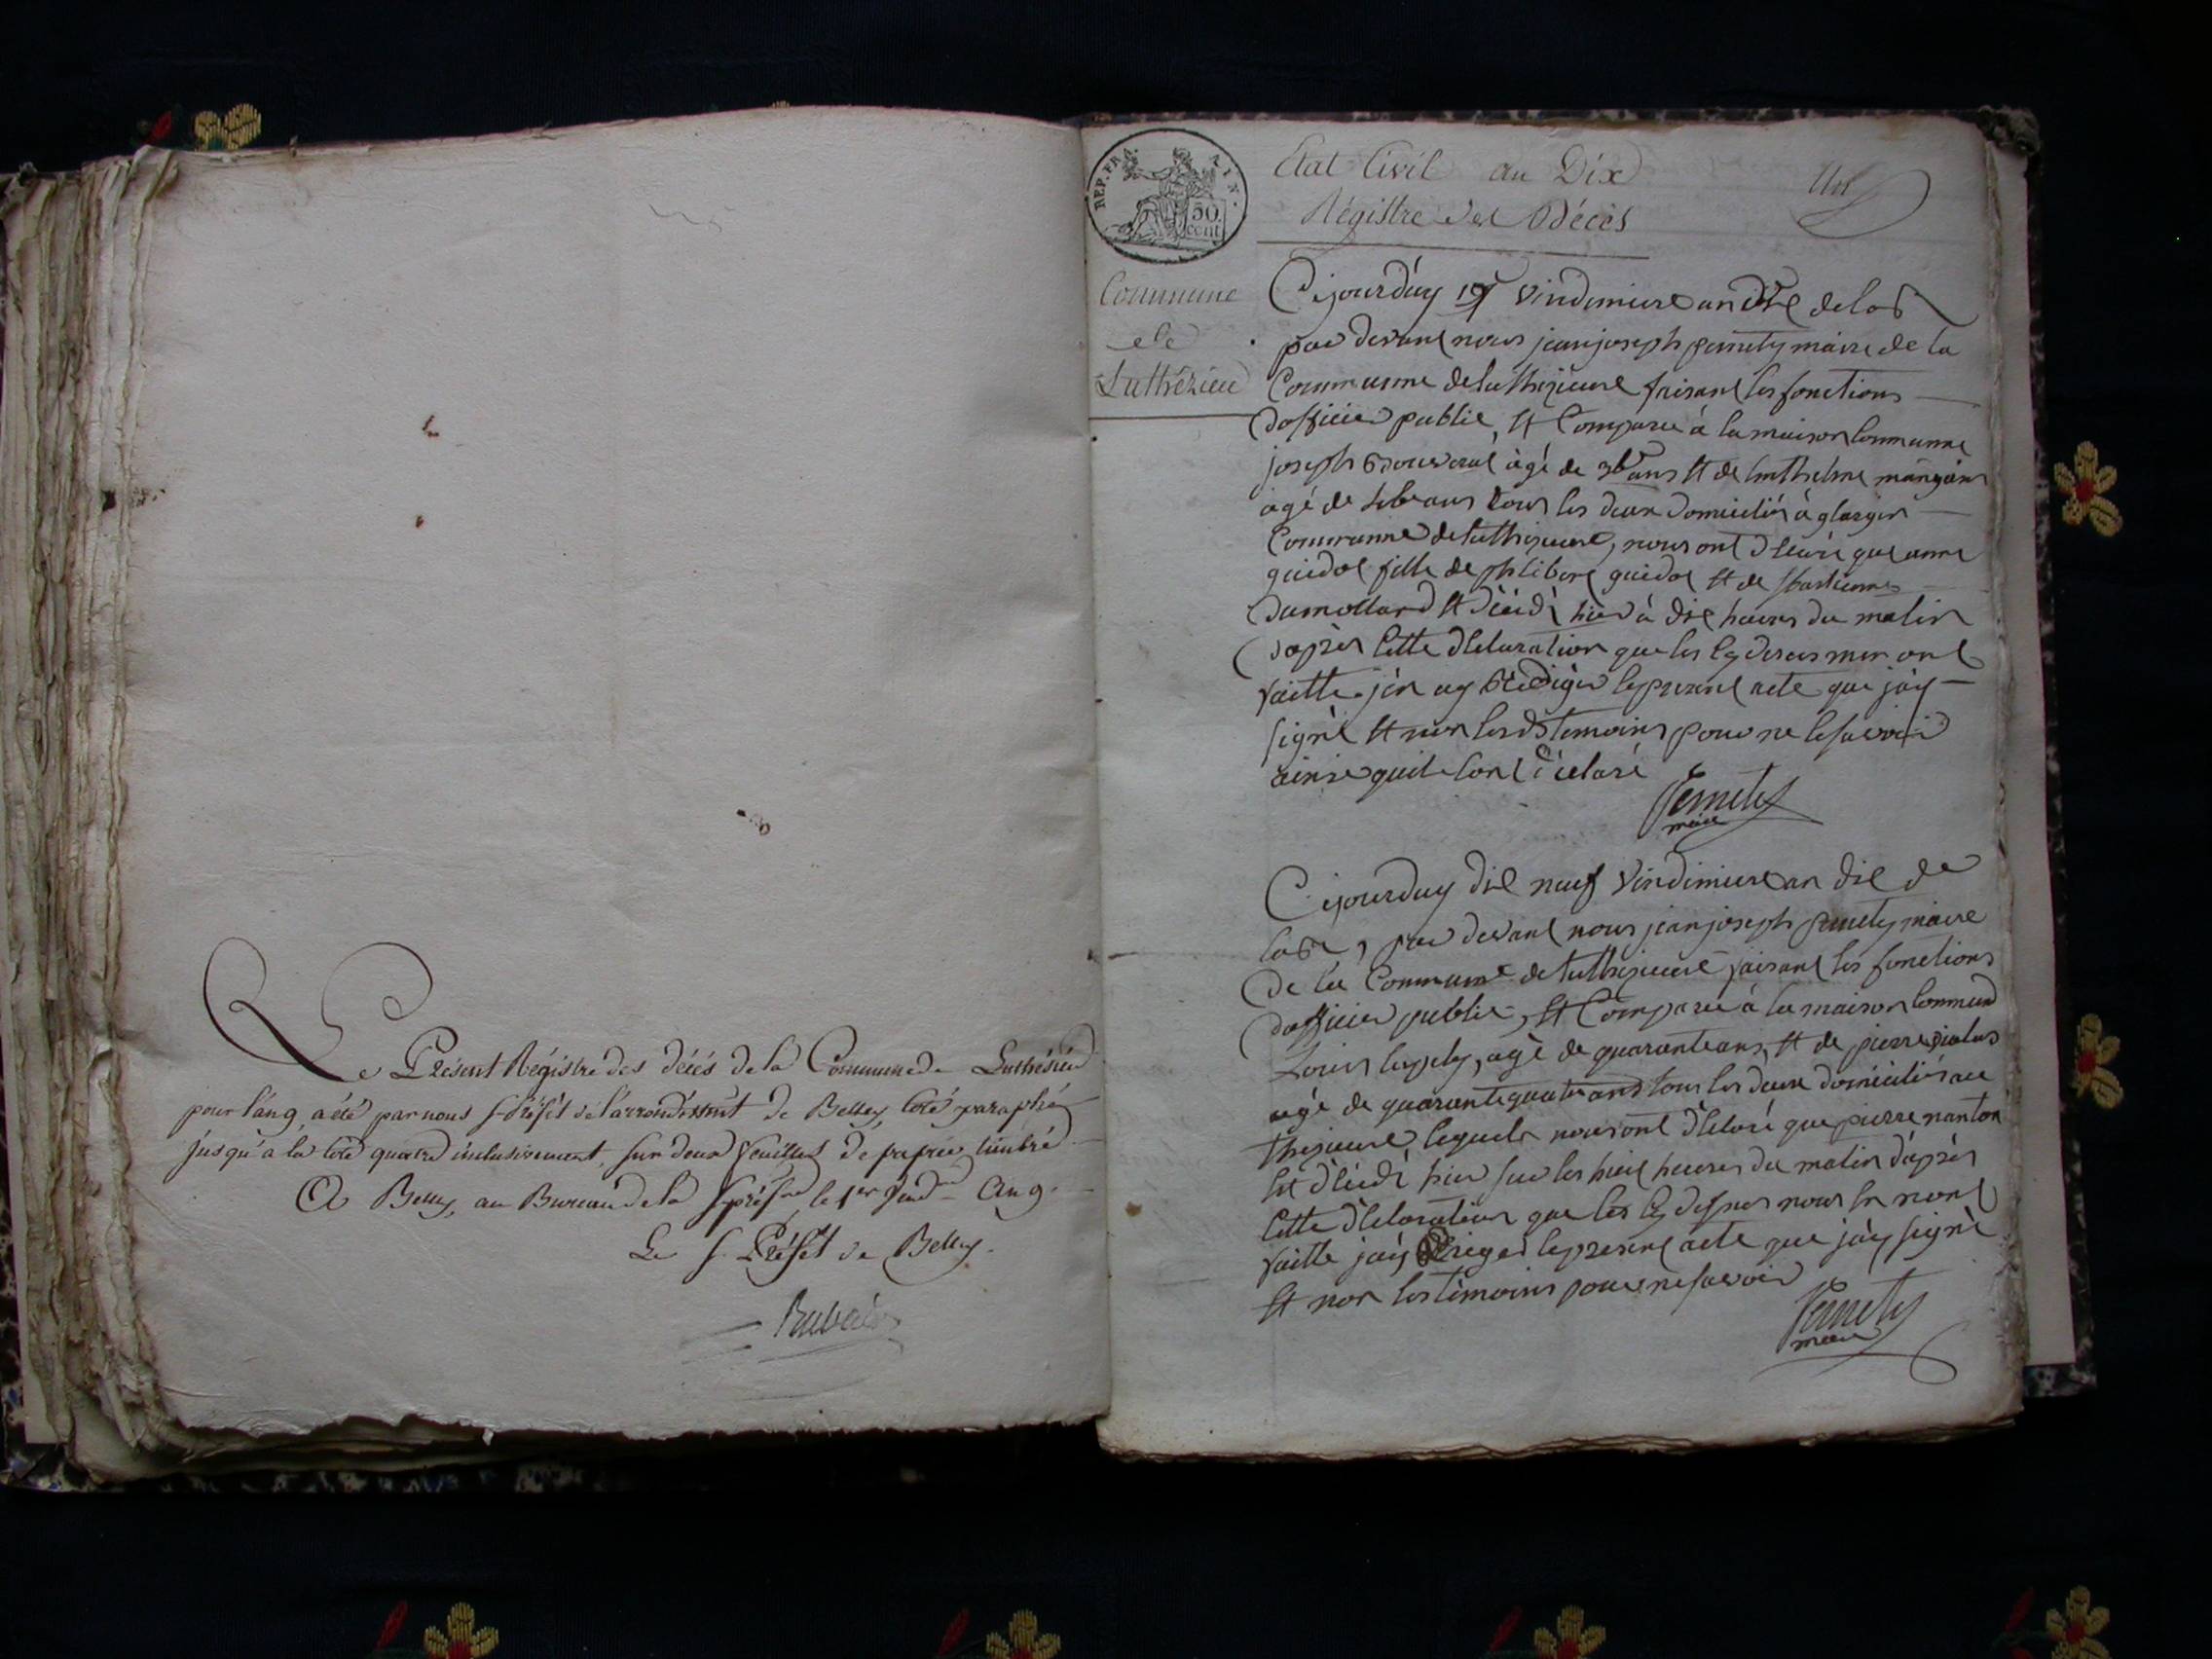 Le Présent Régistre des décés de la Commune de Luthézieu
pour l'an 9, a été par nous S. Préfét de l'arrondissmt de Belley, coté, paraphé
jusqu'a la cote quatre inclusivement, sur deux feuilles de papier timbré
A Belley, au Bureau de la S. préfre le 1er Vendre an 9.
Le S. Préfét de Belley.
REP. FRA
50
cent
Etat Civil an Dix
Un
Régistre des Décès
Commune
de
Luthézieu
Cejourd'uy vindimiere an dix de la R
par devant nous jean joseph pernety maire de la
Commune de luthezieure faisant les fonctions
dofficier public, Et Comparu à la maison Commune
joseph agé de ans Et de Enthelme
agé de ans tous les deux domiciliés à
Commune de luthezieure, nous ont dleuré que anne
guidot fille de philibert guidot Et de
dumollard Et déédé hier à dix heures du matin
dapres Cette dleluration que les Cy desus mon ont
faitte jen ay Redigér le present acte que jäy
signé Et non les ds temoins pour ne le savoir
ainsi quil lont déclaré
Pernety
maire
Cejourduy dix neuf vindimiere an dix de
la Re, par devant nous jean joseph pernety maire
de la Commune de luthezieure faisant les fonctions
dofficier public, Et Comparu à la maison Commune
Louis agé de quarante ans, Et de pierre
agé de quarante quatre ans tous les deux domiciliés au
thezieure, lequels nous ont dleloré que pierre nanton
Est dléédé hier sur les huit heures du matin däprès
Cette dleloration que les Cy desus nous en nont
faitte jäy le present acte que jäy signé
Et non les temoins pour ne savoir
Pernety
maire